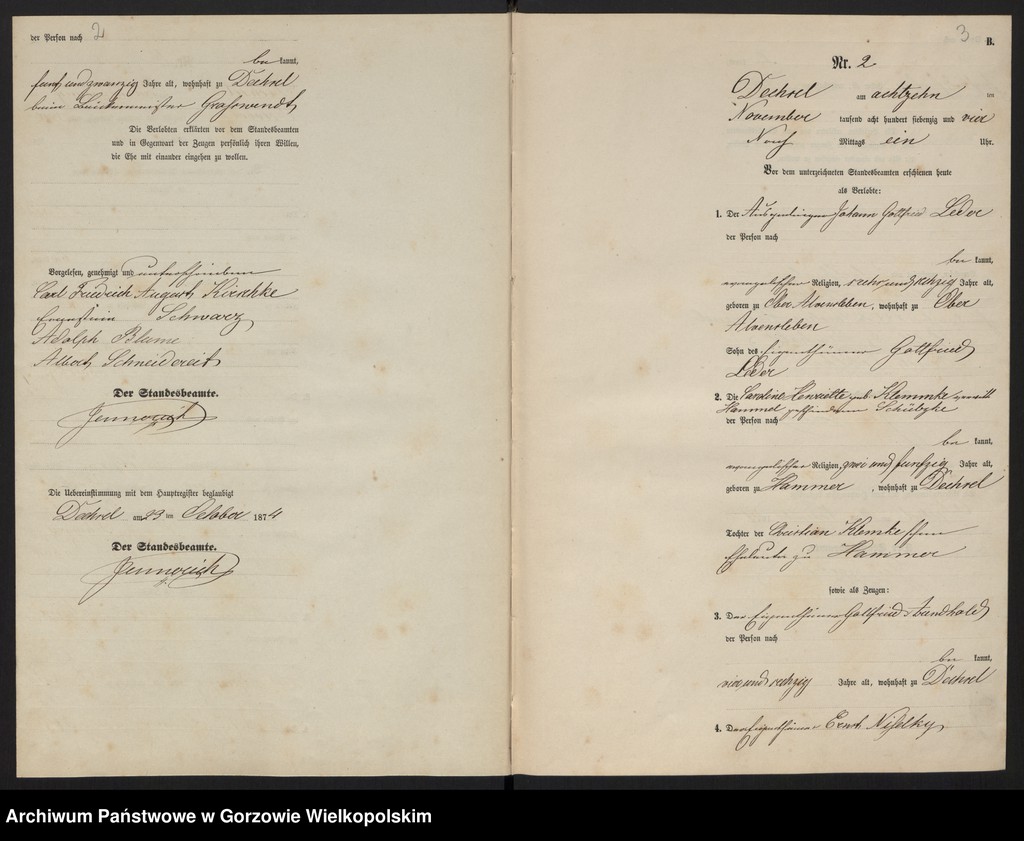 2
der Person nach
bekannt,
fünf und zwanzig Jahre alt, wohnhaft zu Dechsel
beim
Die Verlobten erklärten vor dem Standesbeamten
und in Gegenwart der Zeugen persönlich ihren Willen,
die Ehe mit einander eingehen zu wollen.
Vorgelesen, genehmigt und unterschrieben
Carl Friedrich August Kirschke
Ernestine Schwarz
Adolph Blume
Albert Schneidereit
Der Standesbeamte.
Die Uebereinstimmung mit dem Hauptregister beglaubigt
Dechsel am 23 ten October 1874
Der Standesbeamte.
3
B.
Nr. 2
Dechsel am achtzehn ten
November tausend acht hundert siebenzig und vier
Nach Mittags ein Uhr.
Vor dem unterzeichneten Standesbeamten erschienen heute
als Verlobte:
1. Der Johann Gottfried Leder
der Person nach
bekannt,
evangelischer Religion, sechs und sechzig Jahre alt,
geboren zu Ober Alvensleben, wohnhaft zu Ober
Alvensleben
Sohn des Eigenthümer Gottfried
Leder
2. Die Caroline Henriette geb. Klemmke
Hammel geschiedene
der Person nach
bekannt,
evangelischer Religion, zwei und funfzig Jahre alt,
geboren zu Hammer, wohnhaft zu Dechsel
Tochter der Christian Klemke schen
Eheleute zu Hammer
sowie als Zeugen:
3. Der Eigenthümer Gottfried
der Person nach
bekannt,
vier und sechzig Jahre alt, wohnhaft zu Dechsel
4. Der Eigenthümer Ernst
Archiwum Państwowe w Gorzowie Wielkopolskim